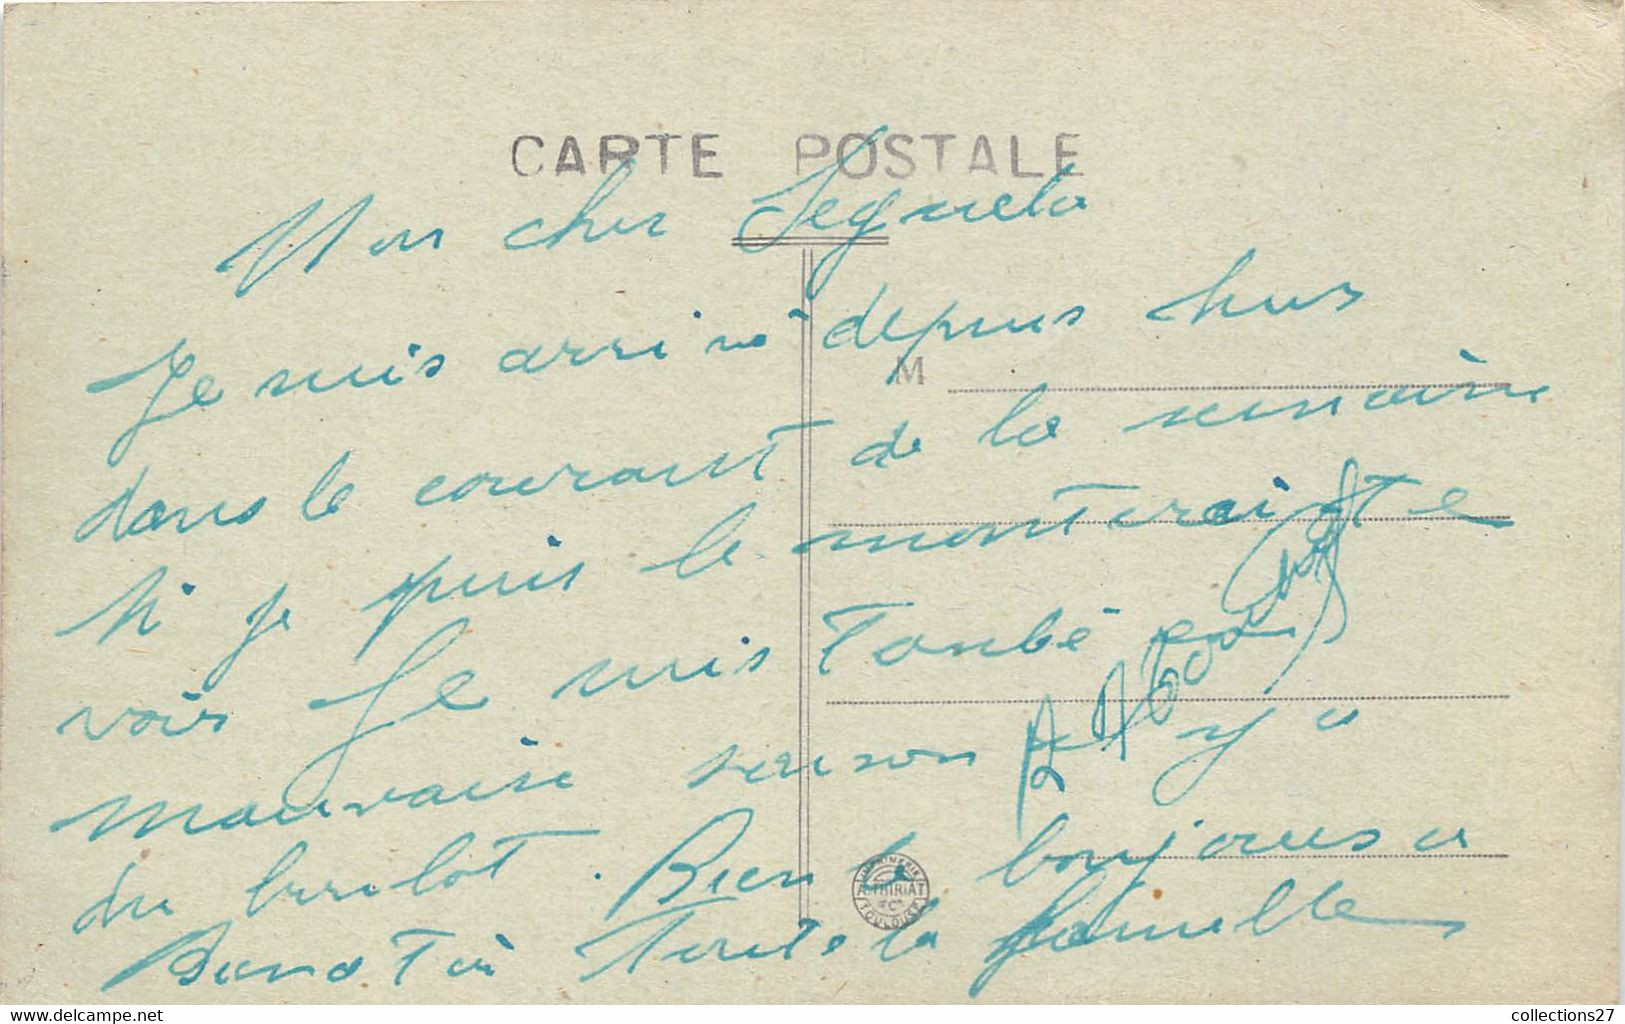 CARTE POSTALE
Mon cher Seguela
Je suis arrivé depuis
M
dans le courant de la semaine
si je puis le monterait te
voir Je suis tombé en
mauvaise saison y a
du boulot. Bien le bonjours a
toute la famille
IMPRIMERIE
A. THIRIAT
& Cie
TOULOUSE
collections27
delcampe.net